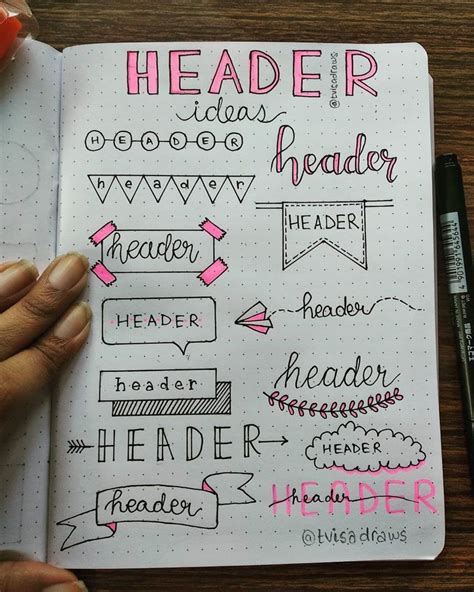 HEADER
@tvisadraws
ideas
HEADER
header
header
HEADER
header
HEADER
header
header
header
HEADER
HEADER
header
header
HEADER
@tvisadraws